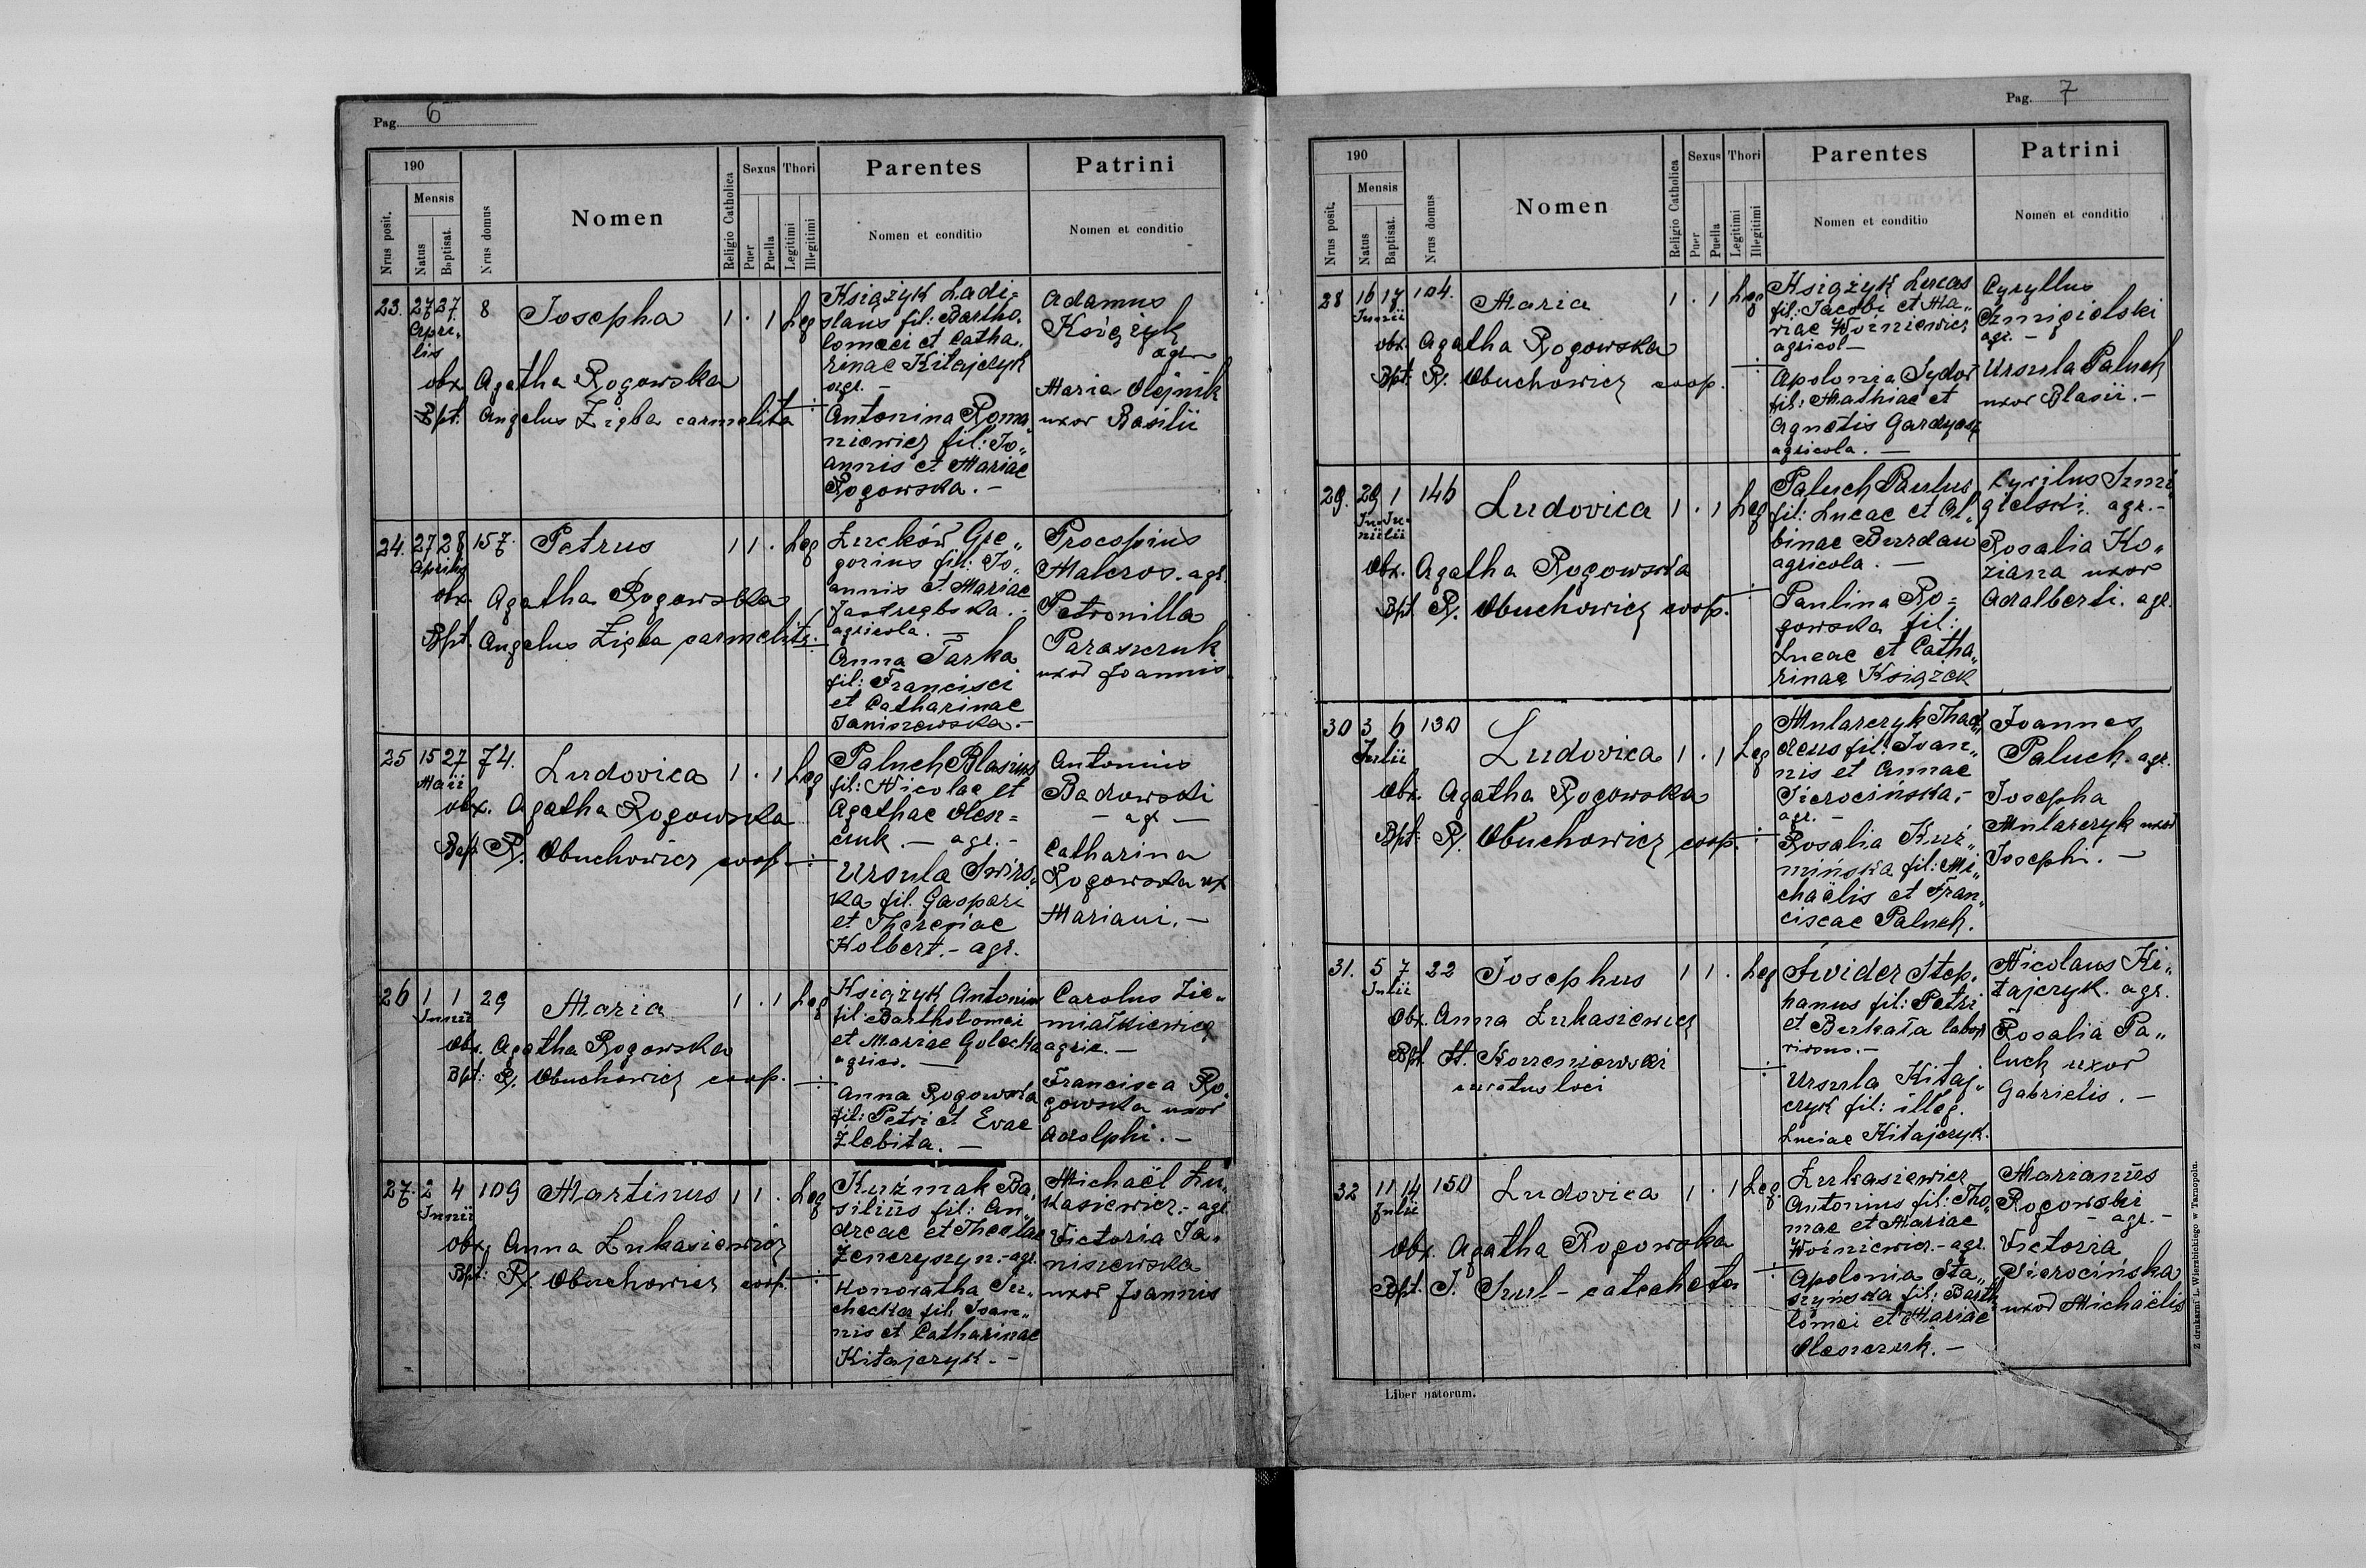 Pag. 6
190
Nrus posit.
Mensis
Natus
Baptisat.
Nrus domus
Nomen
Religio Catholica
Sexus
Puer
Puella
Thori
Legitimi
Illegitimi
Parentes
Nomen et conditio
Patrini
Nomen et conditio
23. 27 27 8 Josepha 1 . 1 Leg
Apri„
lis
obx Agatha Rogowska
Bpt. Angelus Zięba carmelita
Książyk Ladi=
slaus fil: Bartho„
lomaei et Catha„
rinae Kitajczyk
agr. –
Antonina Roma„
niewicz fil: Jo„
annis et Mariae
Rogowska. –
Adamus
Książyk
agr
Maria Olejnik
uxor Basilii
24. 27 28 157. Petrus 1 1 . Leg
Aprilis
obx. Agatha Rogowska
Bpt. Angelus Zięba carmelita.
Łucków Gre„
gorius fil: Jo„
annis et Mariae
Jastrzębska.
agricola. –
Anna Tarka
fil: Francisci
et Catharinae
Janiszewska. –
Procopius
Maleros. agr.
Petronilla
Paraszczuk
uxor Joannis
25 15 27 74. Ludovica 1 . 1 Leg
Maii
obx. Agatha Rogowska
Bapt. R. Obuchowicz coop.
Paluch Blasius
fil: Nicolae et
Agathae Olesz=
czuk. – agr. –
Ursula Świrs„
ka fil. Gaspari
et Theresiae
Holbert. – agr.
Antonius
Badowski
– agr –
Catharina
Rogowska ux
Mariani. –
26 1 1 29 Maria 1 . 1 Leg
Junii
obx. Agatha Rogowska
Bpt: R. Obuchowicz coop.
Książyk Antonius
fil: Bartholomei
et Mariae Golecka
agric. –
Anna Rogowska
fil: Petri et Evae
Żlebita. –
Carolus Zie„
miałkiewicz
agric. –
Francisca Ro„
gowska uxor
Adolphi. –
27. 2 4 109 Martinus 1 1 . Leg
Junii
obx. Anna Łukasiewicz
Bpt: R. Obuchowicz coop.
Kuźmak Ba„
silius fil: An„
dreae et Theclae
Żenczyszyn. – agr.
Honoratha Su„
checka fil: Joan„
nis et Catharinae
Kitajczyk. –
Michaël Łu„
kasiewicz. – agr.
Victoria Ja„
niszewska
uxor Joannis
Pag. 7
190
Nrus posit.
Mensis
Natus
Baptisat.
Nrus domus
Nomen
Religio Catholica
Sexus
Puer
Puella
Thori
Legitimi
Illegitimi
Parentes
Nomen et conditio
Patrini
Nomen et conditio
28 16 17 104. Maria 1 . 1 Leg
Junii
obx. Agatha Rogowska
Bpt: R. Obuchowicz coop.
Książyk Lucas
fil: Jacobi et Ma„
riae Woźniewicz
agricol –
Apolonia Sydor
fil: Mathiae et
Agnetis Gardyasz
agricola. –
Cyryllus
Szmigielski
agr. –
Ursula Paluch
uxor Blasii. –
29. 29 1 146 Ludovica 1 . 1 Leg
Ju= Ju=
nii lii
Obx. Agatha Rogowska
Bpt R. Obuchowicz coop.
Paluch Paulus
fil: Lucae et Al„
binae Burdau
agricola. –
Paulina Ro=
gowska fil:
Lucae et Catha„
rinae Książek
Cyrilus Szmi„
gielski. agr. –
Rosalia Ko„
ziana uxor
Adalberti. agr.
30 3 6 130 Ludovica 1 . 1 Leg
Julii
Obx. Agatha Rogowska
Bpt: R. Obuchowicz coop.
Mularczyk Thad„
deus fil: Joan„
nis et Annae
Sierocińska, –
agr. –
Rosalia Kuź„
mińska fil: Mi„
chaëlis et Fran„
ciscae Paluch.
Joannes
Paluch. agr.
Josepha
Mularczyk uxor
Josephi. –
31. 5 7 22 Josephus 1 1 . Leg
Julii
Obx. Anna Łukasiewicz
Bpt. H. Korzeniowski
curatus loci
Świder Step„
hanus fil: Petri
et Berkała labor
Ursula Kitaj„
czyk fil: illeg.
Luciae Kitajczyk.
Nicolaus Ki„
tajczyk. agr.
Rosalia Pa„
luch uxor
Gabrielis. –
32 11 14 150 Ludovica 1 . 1 Leg.
Julii
Obx. Agatha Rogowska
Bpt. J. Szul – catecheta
Łukasiewicz
Antonius fil: Tho„
mae et Mariae
Woźniewicz. – agr.
Apolonia Sta„
szyńska fil: Barth„
lomei et Mariae
Oleszczuk. –
Marianus
Rogowski
– agr. –
Victoria
Sierocińska
uxor Michaëlis
Liber natorum.
Z drukarni L. Wierzbickiego w Tarnopolu.